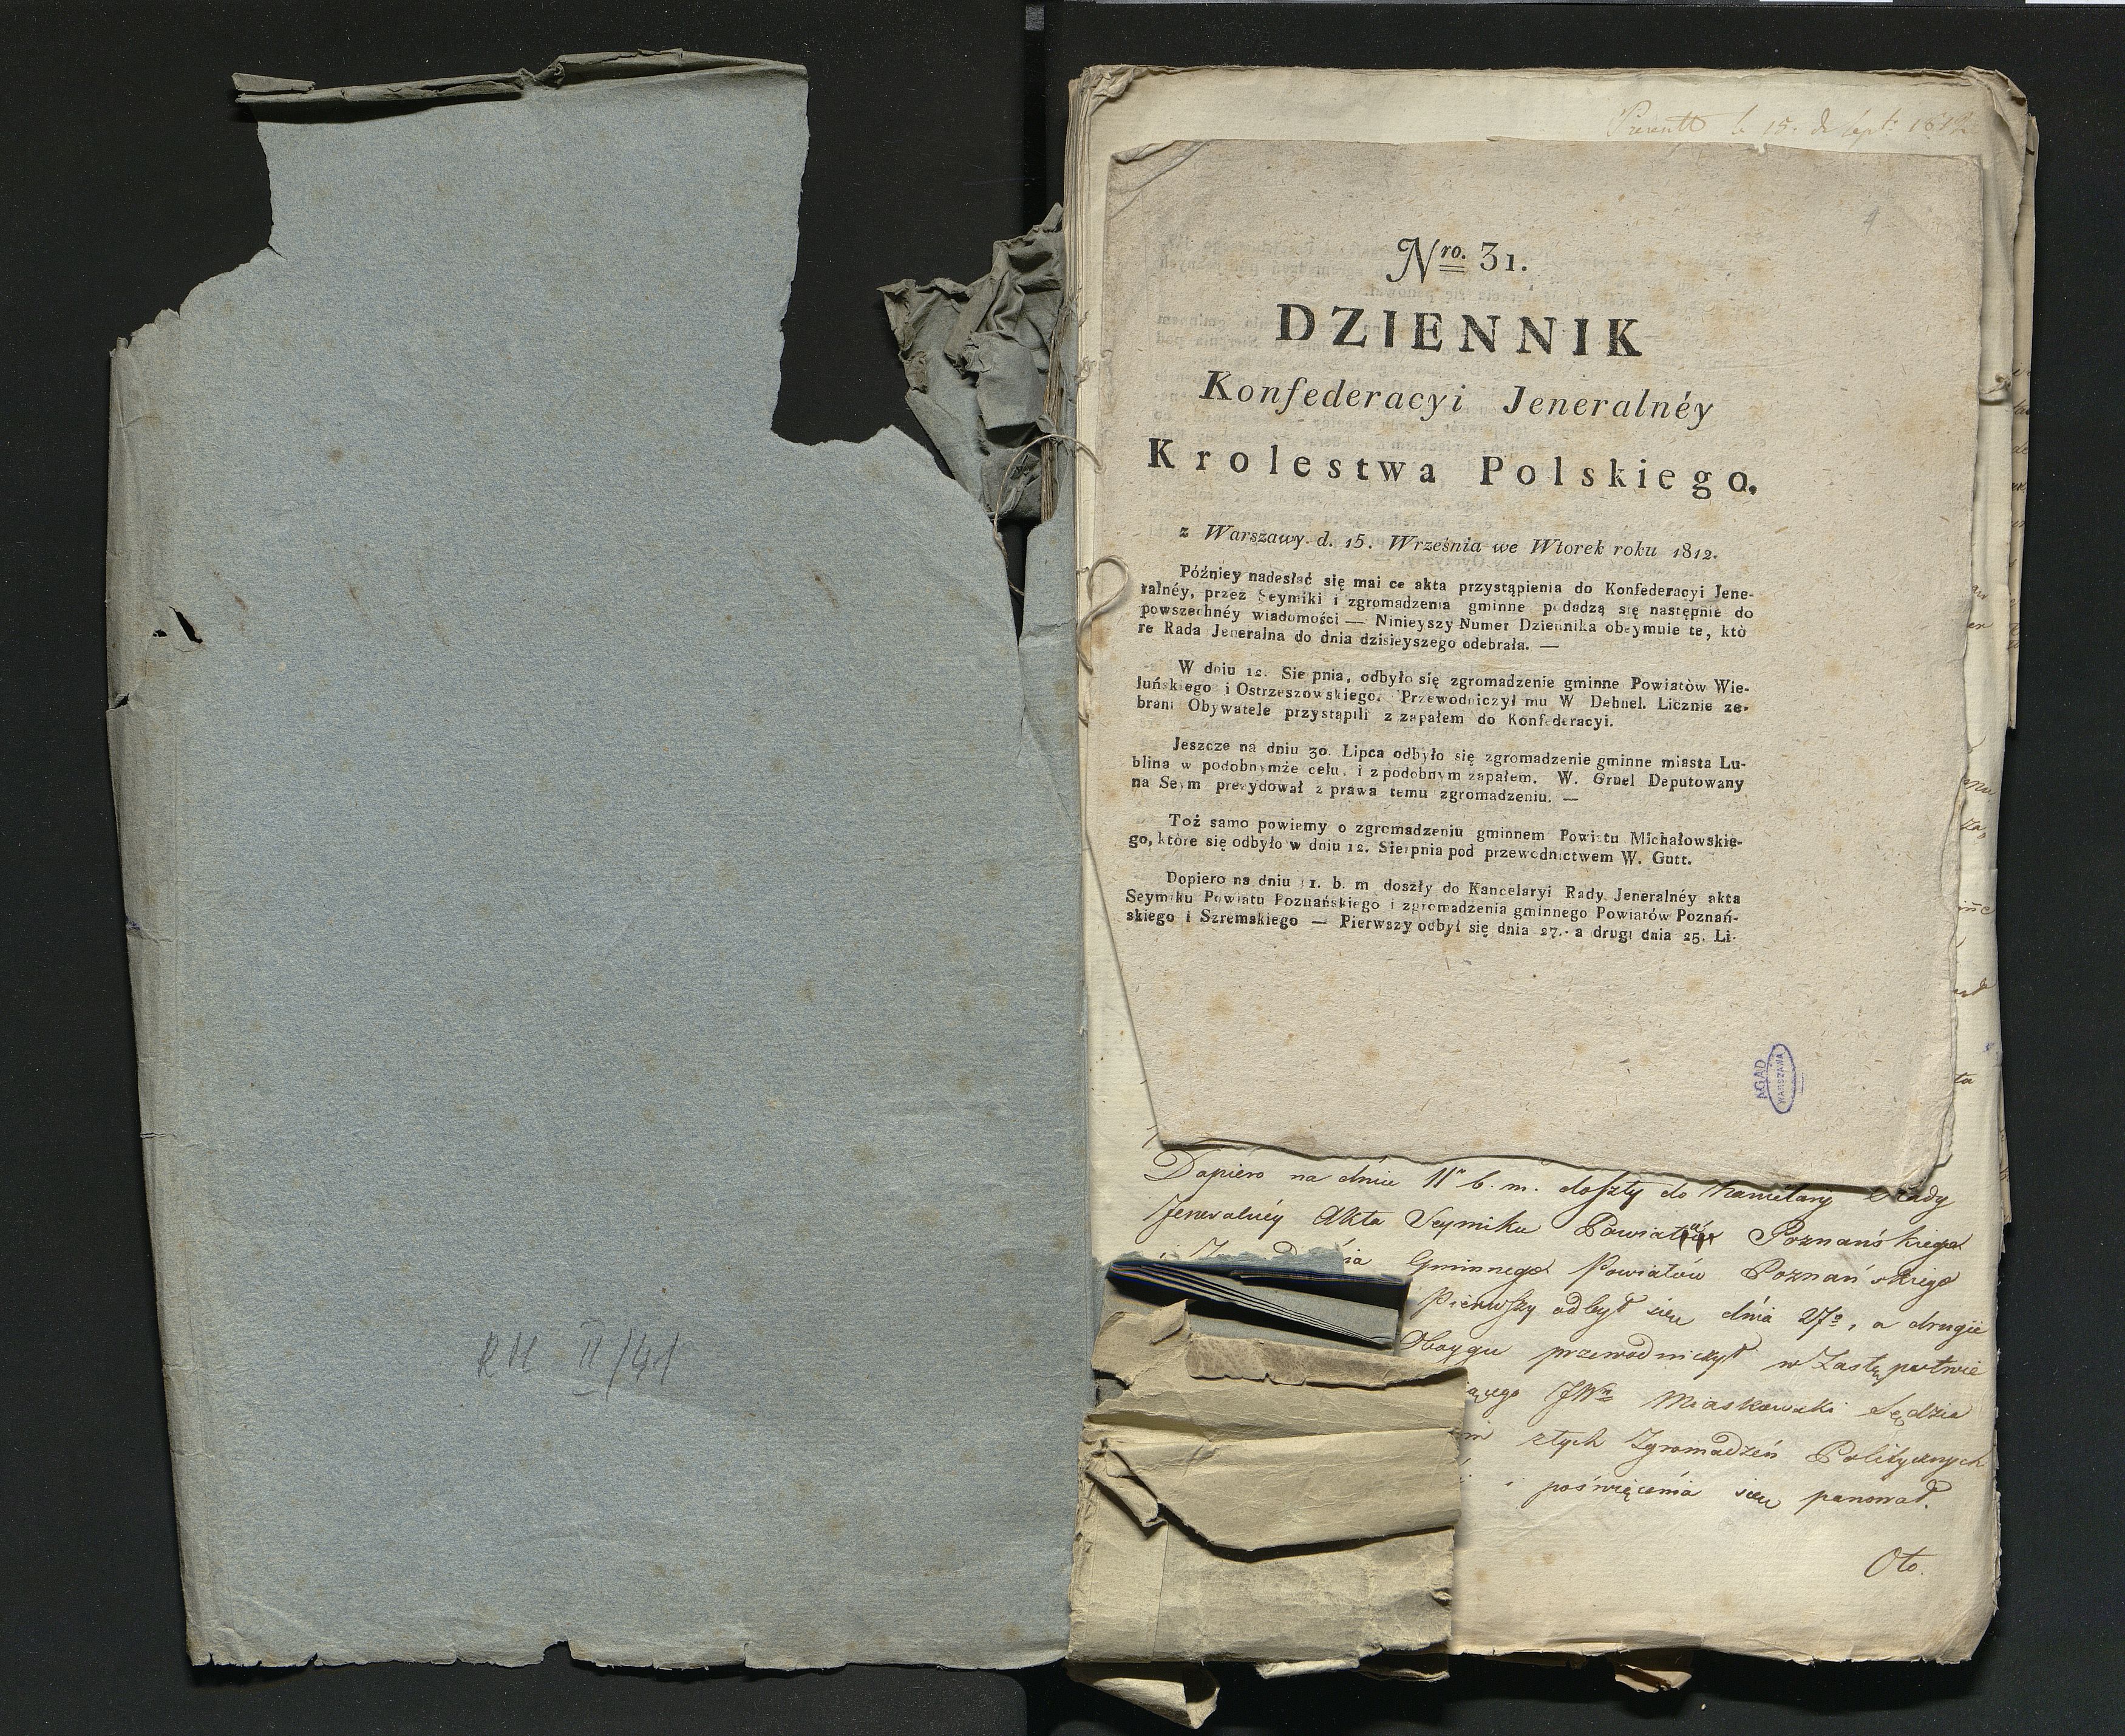 RM II/41
le 15. de Sept. 1812
Nro. 31.
DZIENNIK
Konfederacyi Jeneralnéy
Krolestwa Polskiego.
z Warszawy. d. 15. Września we Wtorek roku 1812.
Późniey nadesłać się mai ce akta przystąpienia do Konfederacyi Jene-
ralnéy, przez Seymiki i zgromadzenia gminne podadzą się następnie do
powszechnéy wiadomości — Ninieyszy Numer Dziennika obeymuie te, któ
re Rada Jeneralna do dnia dzisieyszego odebrała. —
W dniu 12. Sierpnia, odbyło się zgromadzenie gminne Powiatòw Wie-
luńskiego i Ostrzeszowskiego. Przewodniczył mu W Dehnel. Licznie ze-
brani Obywatele przystąpili z zapałem do Konfederacyi.
Jeszcze na dniu 30. Lipca odbyło się zgromadzenie gminne miasta Lu-
blina w podobnymże celu, i z podobnym zapałem. W. Gruel Deputowany
na Seym prezydował z prawa temu zgromadzeniu. —
Toż samo powiemy o zgromadzeniu gminnem Powiatu Michałowskie-
go, które się odbyło w dniu 12. Sierpnia pod przewodnictwem W. Gutt.
Dopiero na dniu 11. b. m doszły do Kancelaryi Rady Jeneralnéy akta
Seymiku Powiatu Poznańskiego i zgromadzenia gminnego Powiatów Poznań-
skiego i Szremskiego — Pierwszy odbył się dnia 27. a drugi dnia 25. Li-
AGAD
WARSZAWA
Dopiero na dniu 11 b. m. doszły do Kancelaryi Rady
Jeneralnéy Akta Seymiku Powiatu Poznańskiego
Gminnego Powiatów Poznańskiego
Pierwszy odbył sieu dnia 27º, a drugie
Oboygu przewodniczył w Zastępstwie
JWny Miaskowski Sędzia
z tych Zgromadzeń Politycznych
i poświęcenia sieu panował.
Oto.